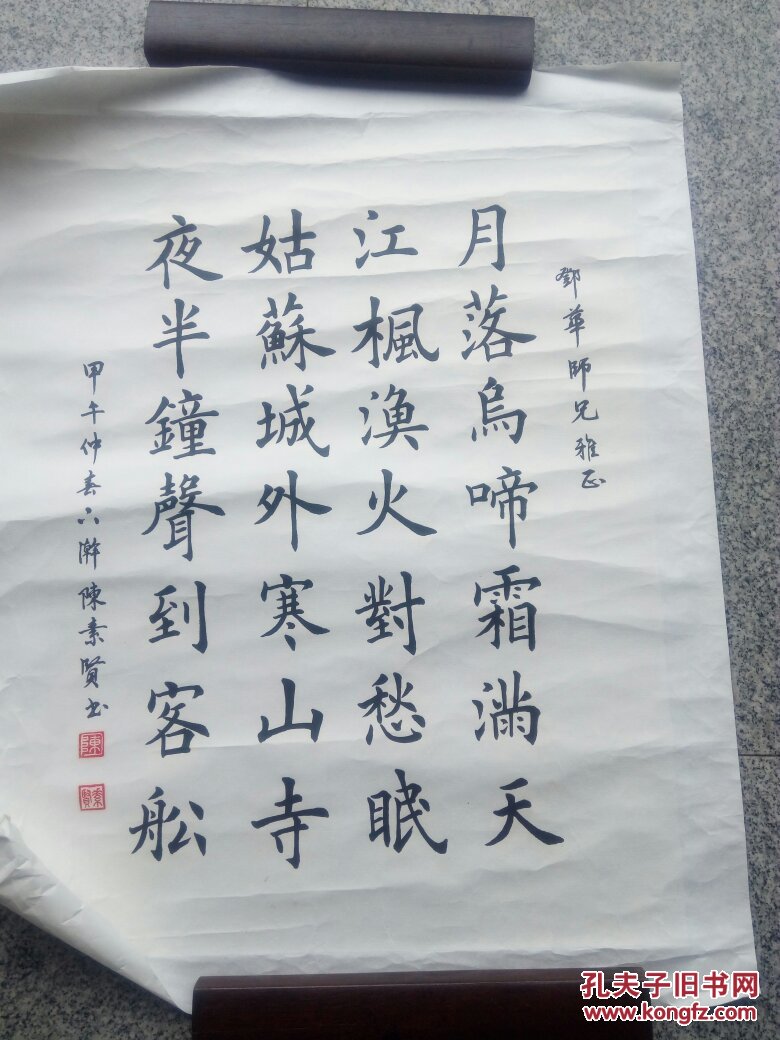 鄧華師兄雅正
月落烏啼霜滿天
江楓漁火對愁眠
姑蘇城外寒山寺
夜半鐘聲到客船
甲午仲春六澣陳素賢书
陳
素賢
孔夫子旧书网
www.kongfz.com